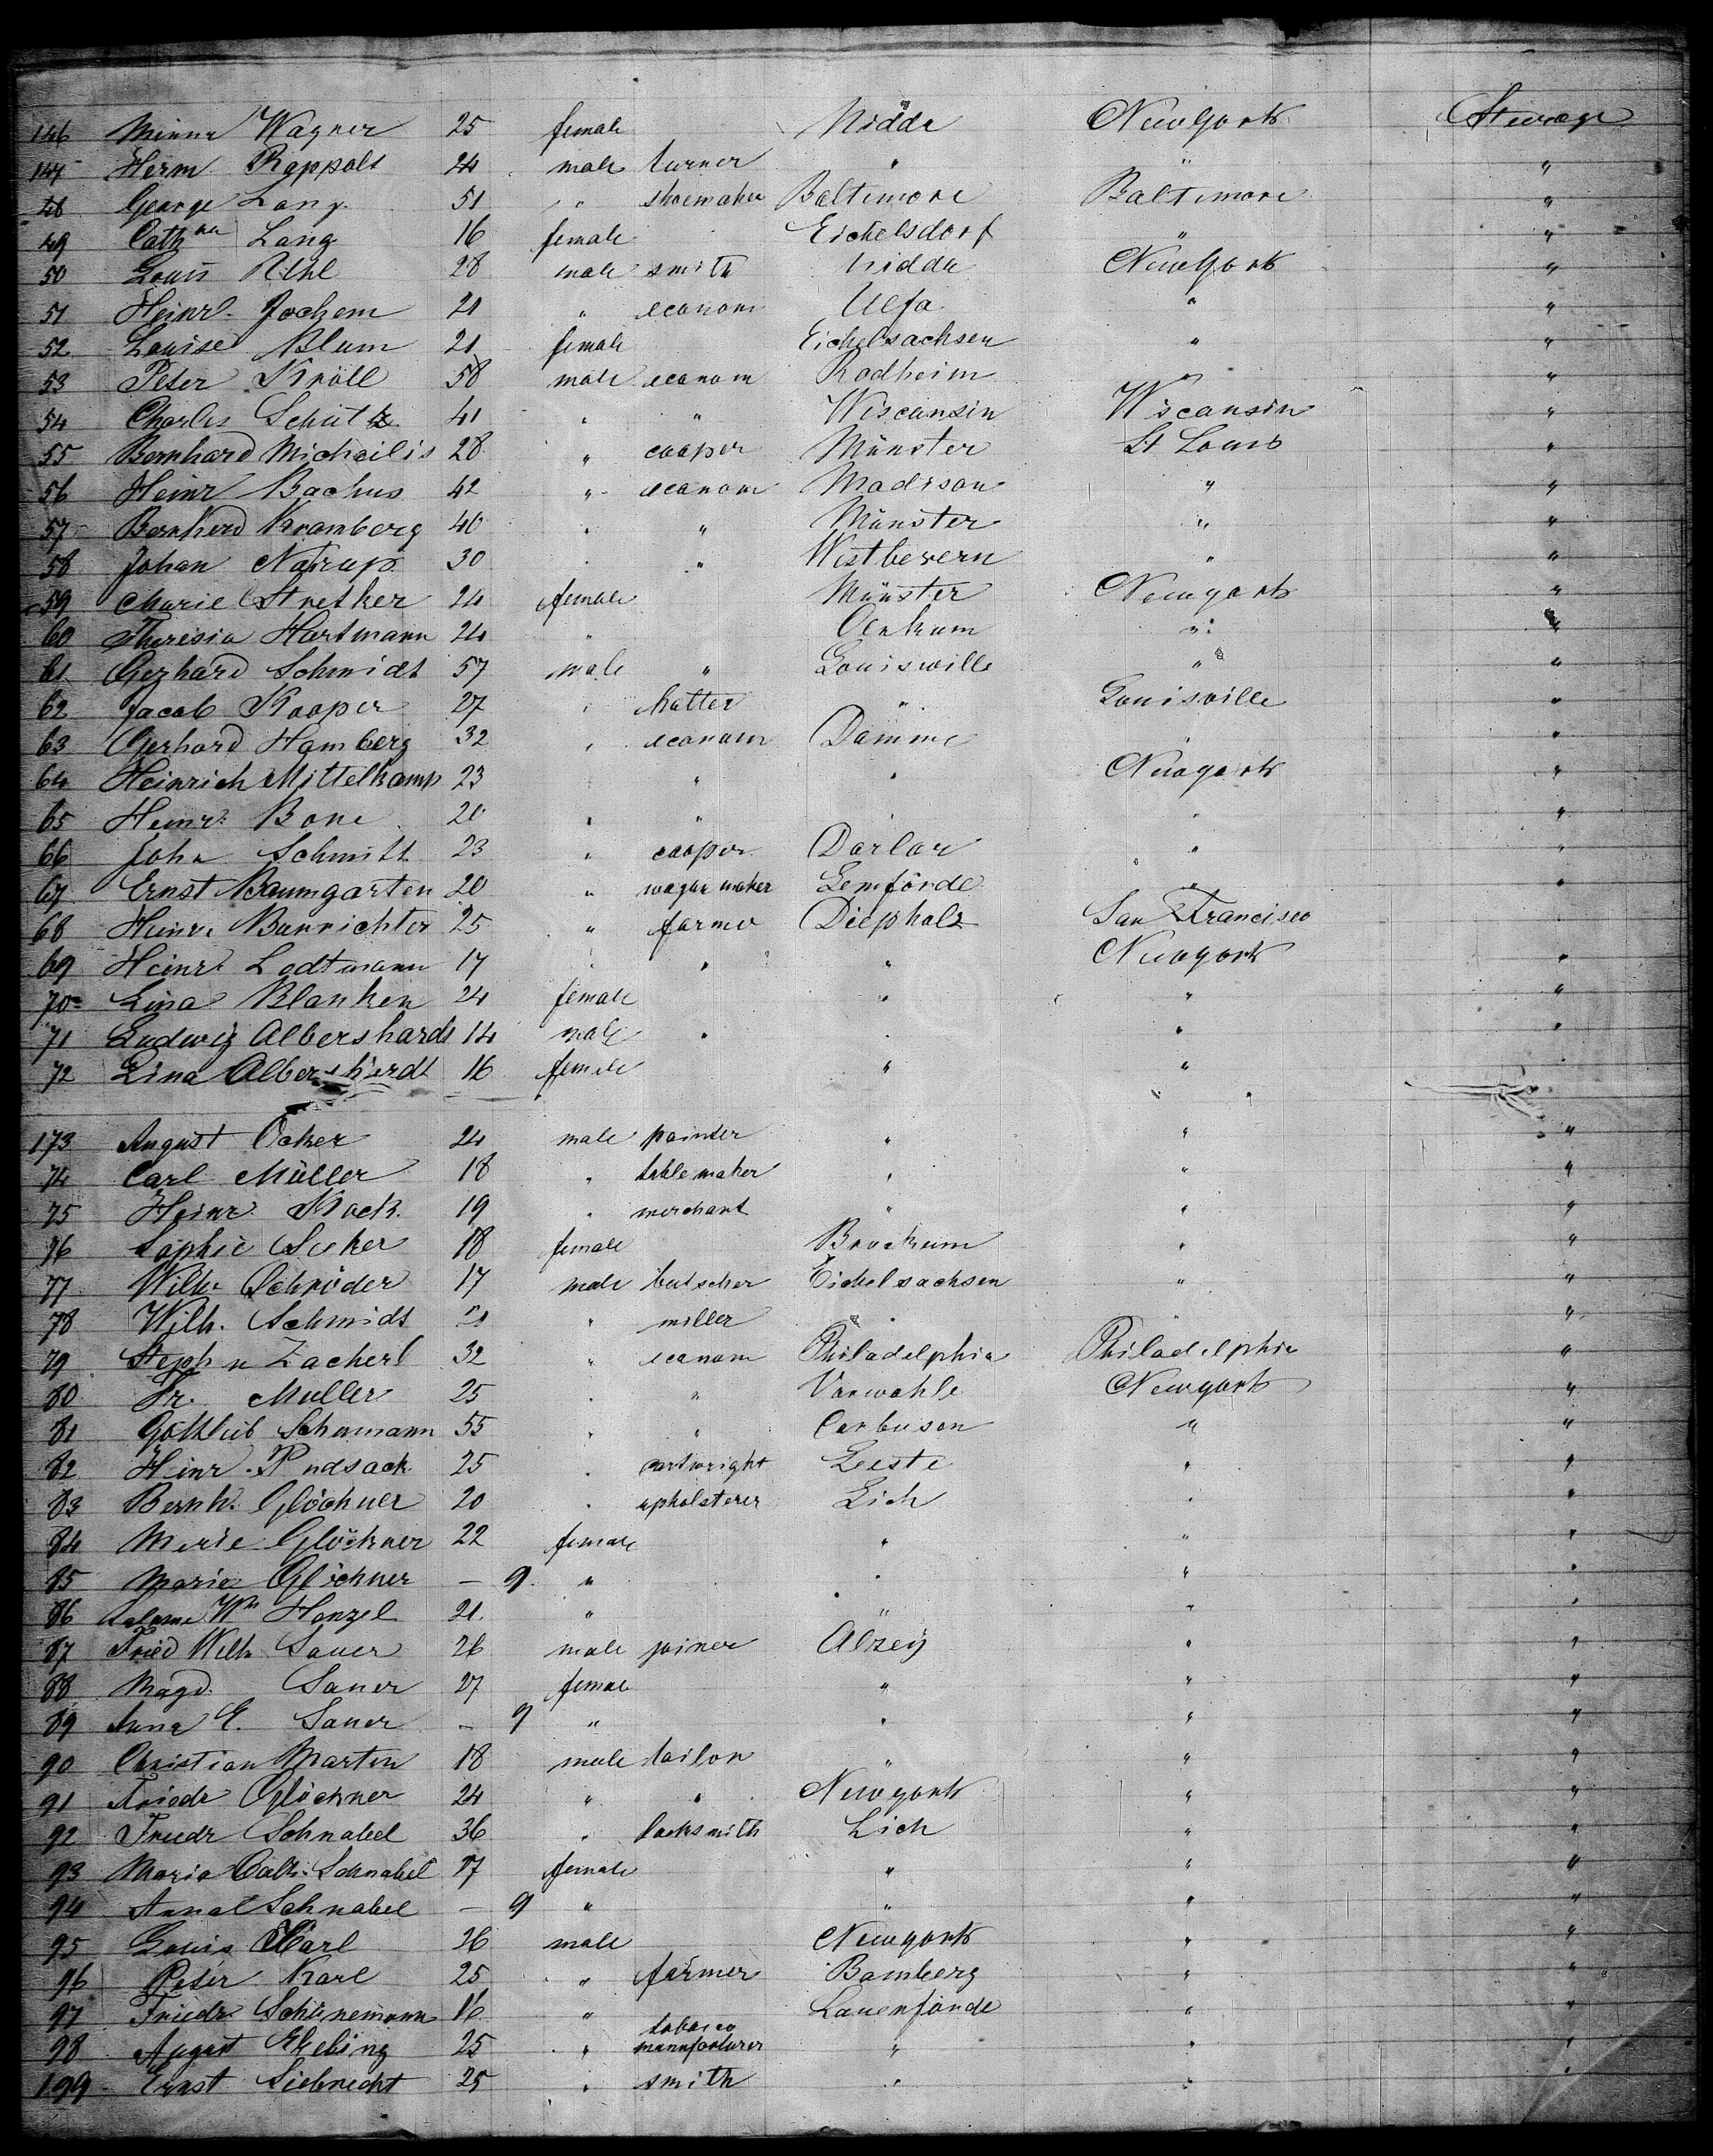 146 Minna Wagner 25 female Nidda NewYork Steerage
147 Herm. Rappolt 24 male turner " " "
48 George Lang 51 " shoemaker Baltimore Baltimore "
49 Cath Lang 16 female Eichelsdorf " "
50 Louis Rihl 28 male smith Nidda NewYork "
51 Heinr. Jochem 21 " econom Ulfa " "
52 Louise Blum 21 female Eichelsachsen " "
53 Peter Kröll 58 male econom Rodheim " "
54 Charles Schütz 41 " " Wisconsin Wisconsin "
55 Bernhard Michailis 28 " cooper Münster St Louis "
56 Heinr Bachus 42 " econom Madison " "
57 Bernherd Kramberg 40 " " Münster " "
58 Johan Natrup 30 " " Westbevern " "
59 Marie Stretker 24 female Münster Newyork "
60 Theresia Hartmann 24 " " "
61 Gerhard Schmidt 57 male " Louiswille " "
62 Jacob Kooper 27 " hatter " Louisville "
63 Gerhard Hamberg 32 " econom Damme " "
64 Heinrich Mittelkamp 23 " " " Newyork "
65 Heinr. Bone 20 " " " " "
66 John Schmitt 23 " cooper Darlar " "
67 Ernst Baumgarten 20 " wagon maker Lemförde " "
68 Heinr. Banrichter 25 " farmer Diepholz San Francisco
69 Heinr. Lodtmann 17 " " " Newyork "
70 Lina Blanken 24 female " " "
71 Ludwig Albershardt 14 male " " " "
72 Lina Albershardt 16 female " " "
173 August Ocker 24 male painter " " "
74 Carl Müller 18 " table maker " " "
75 Heinr. Kock 19 " merchant " " "
76 Sophie Sieker 18 female Brockum " "
77 Wilh. Schröder 17 male butscher Eichelsachsen " "
78 Wilh. Schmidt " miller " " "
79 Steph n Zacherl 32 " econom Philadelphia Philadelphia "
80 Fr. Muller 25 " " Varwohle Newyork "
81 Gottlieb Schumann 55 " " " "
82 Heinr. 25 " cartwright Leeste " "
83 Bernh. Glöckner 20 " upholsterer Lich " "
84 Marie Glöckner 22 female " " "
85 Maria Glöckner — 9 " " " "
86 Wm Henzel 21 " " " "
87 Fried Wilh Sauer 26 male joiner Alzey " "
88 Magd. Sauer 27 female " " "
89 Anna E. Sauer — 9 " " " "
90 Christian Martin 18 male tailor " " "
91 Friedr Glöckner 24 " " Newyork " "
92 Friedr Schnabel 36 " locksmith Lich " "
93 Maria Cath. Schnabel 17 female " " "
94 Anna Schnabel — 9 " " " "
95 Louis Karl 26 male Newyork " "
96 Peter Karl 25 " farmer Bamberg " "
97 Friedr. Schünemann 16 " Lauenförde " "
98 August Ebeling 25 " tobacco manufacturer " " "
199 Ernst Siebrecht 25 " smith " " "